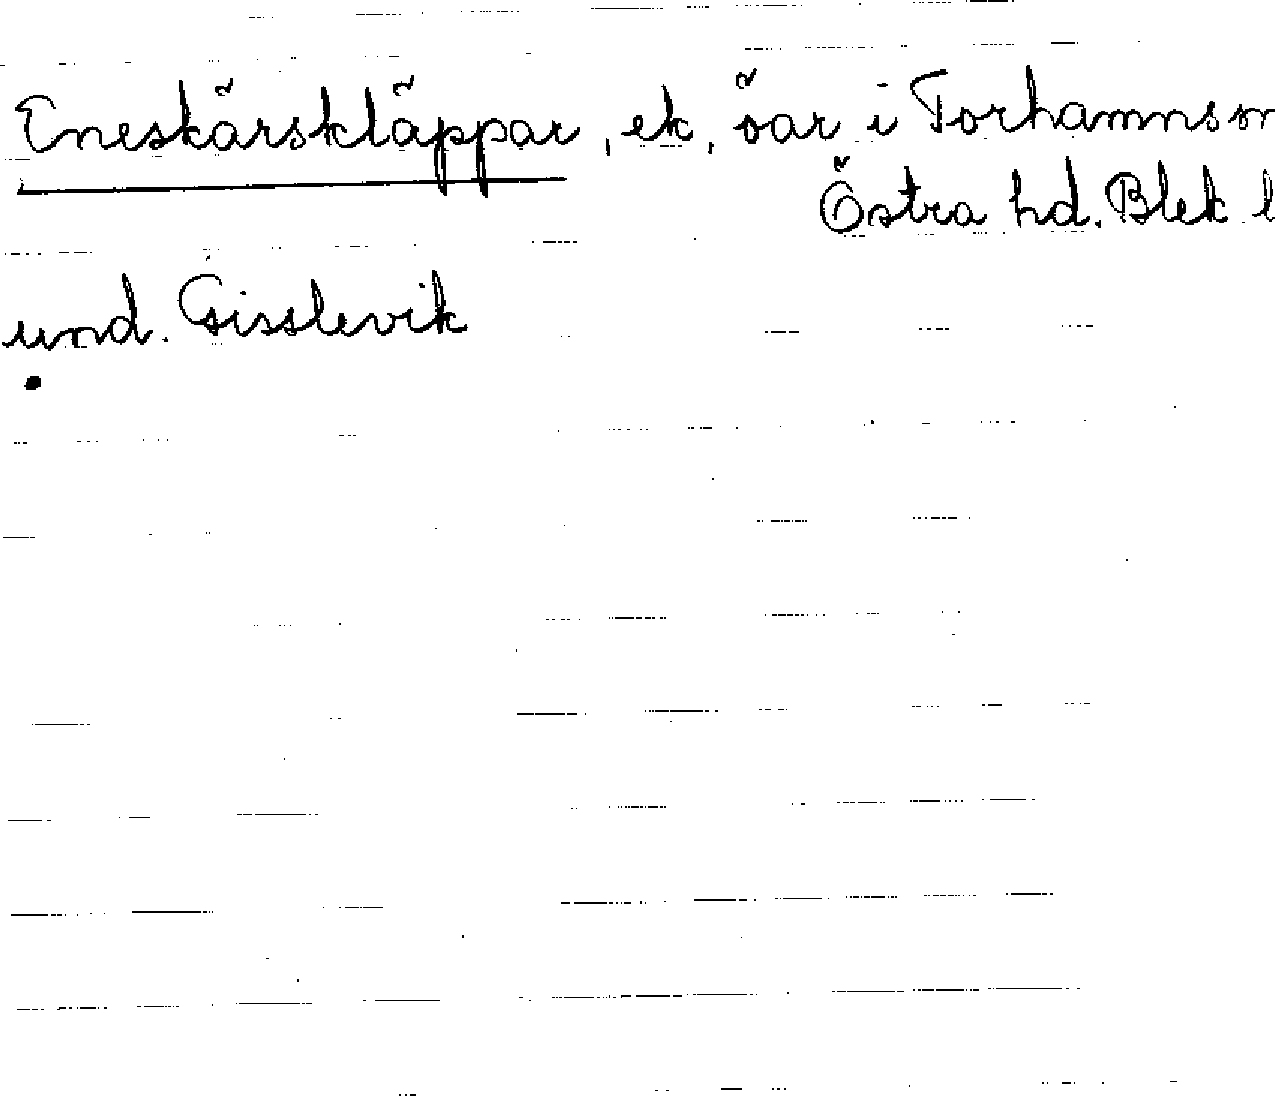 Eneskärskläppar, ek, öar i Torhamns sn
Östra hd. Blek l
und. Gisslevik